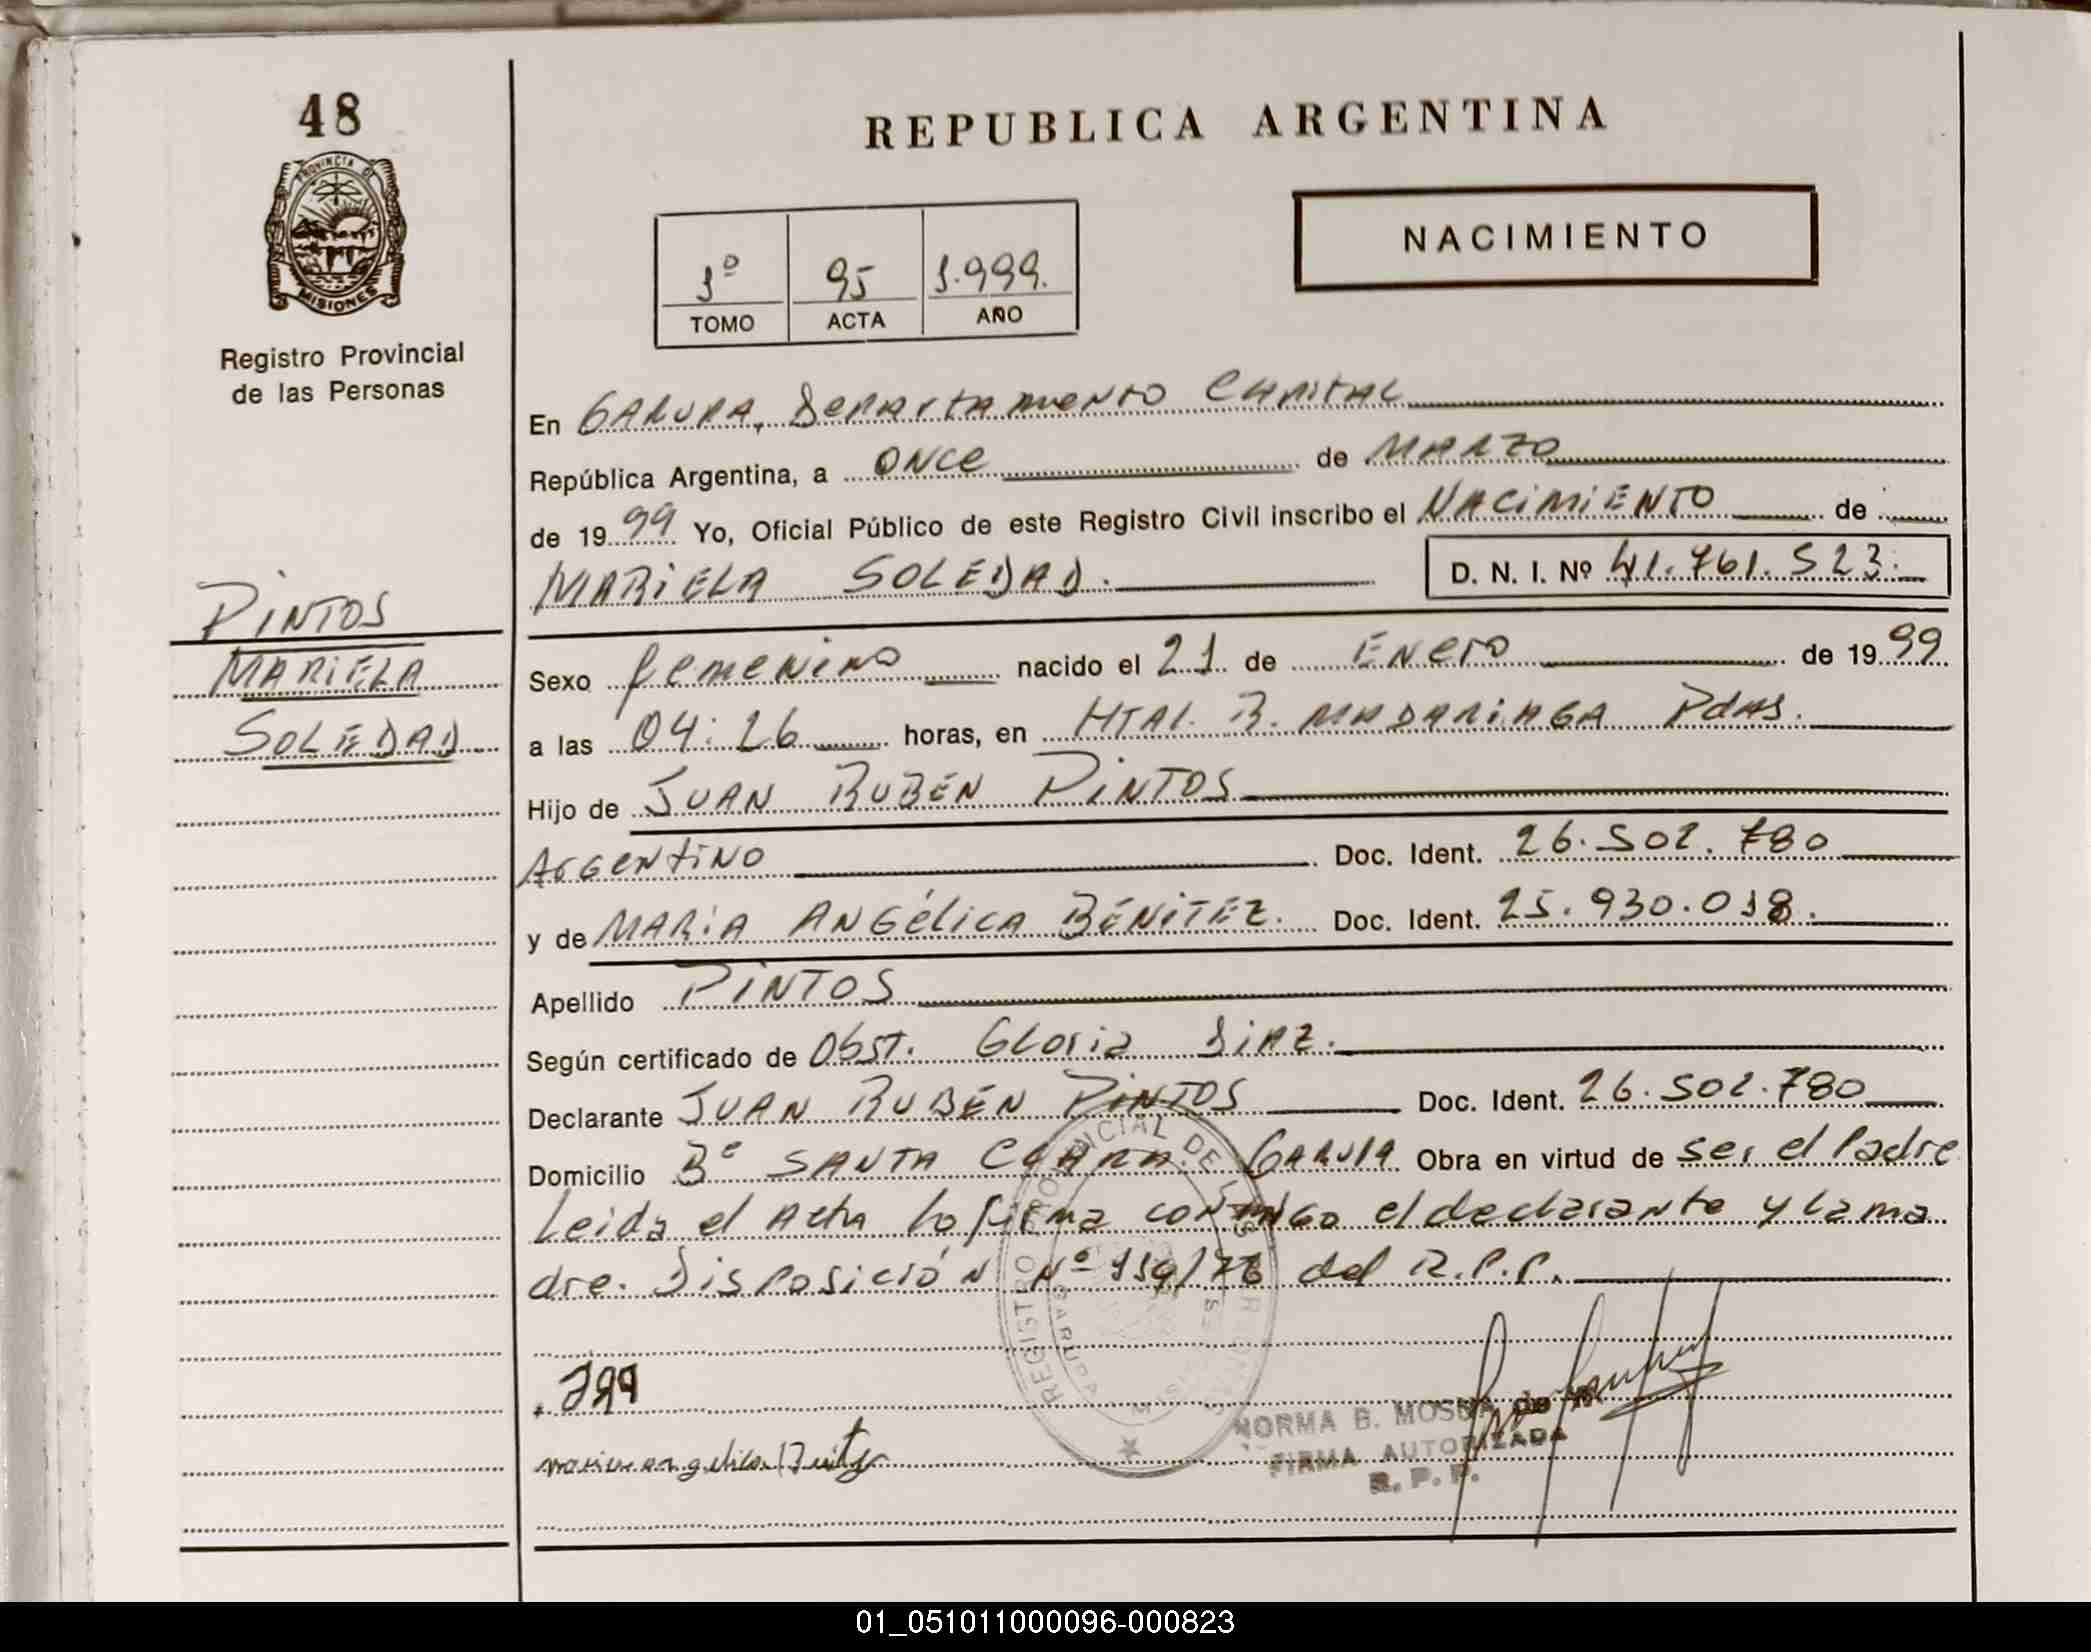 48
REPUBLICA ARGENTINA
PROVINCIA DE MISIONES
Registro Provincial
de las Personas
NACIMIENTO
1º 95 1.999.
TOMO ACTA AÑO
En GARUPA, Departamento Capital
República Argentina, a ONCE de MARZO
de 1999 Yo, Oficial Público de este Registro Civil inscribo el NACIMIENTO de
MARIELA SOLEDAD. D. N. I. Nº 41.761.523.
PINTOS
MARIELA
SOLEDAD
Sexo femenino nacido el 21 de Enero de 1999
a las 04:26 horas, en Htal. R. MADARIAGA Pdas.
Hijo de JUAN RUBÉN PINTOS
Argentino Doc. Ident. 26.502.780
y de MARIA ANGÉLICA BÉNITEZ. Doc. Ident. 25.930.018.
Apellido PINTOS
Según certificado de Obst. Gloria Diaz.
Declarante JUAN RUBÉN PINTOS Doc. Ident. 26.502.780
Domicilio Bº SANTA CLARA. GARUPA Obra en virtud de ser el Padre
Leida el Acta la firma conmigo el declarante y la ma
dre. Disposición Nº 119/78 del R.P.P.
REGISTRO PROVINCIAL DE LAS PERSONAS
GARUPA MISIONES
NORMA B. de
FIRMA AUTORIZADA
R. P. P.
maria angelica
01_051011000096-000823